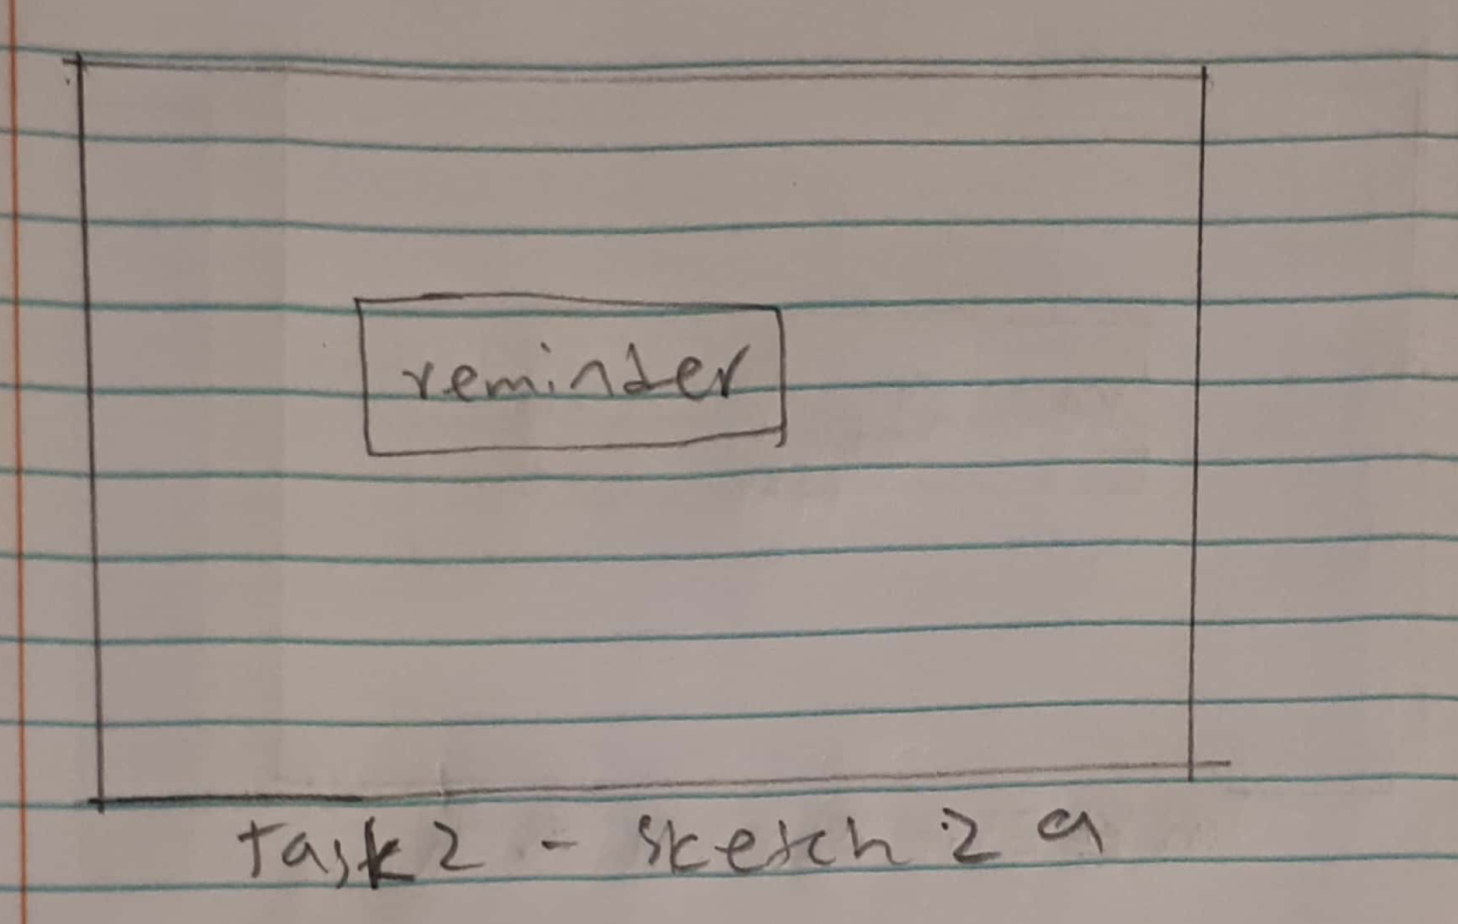 reminder
Task 2 - sketch 2 a